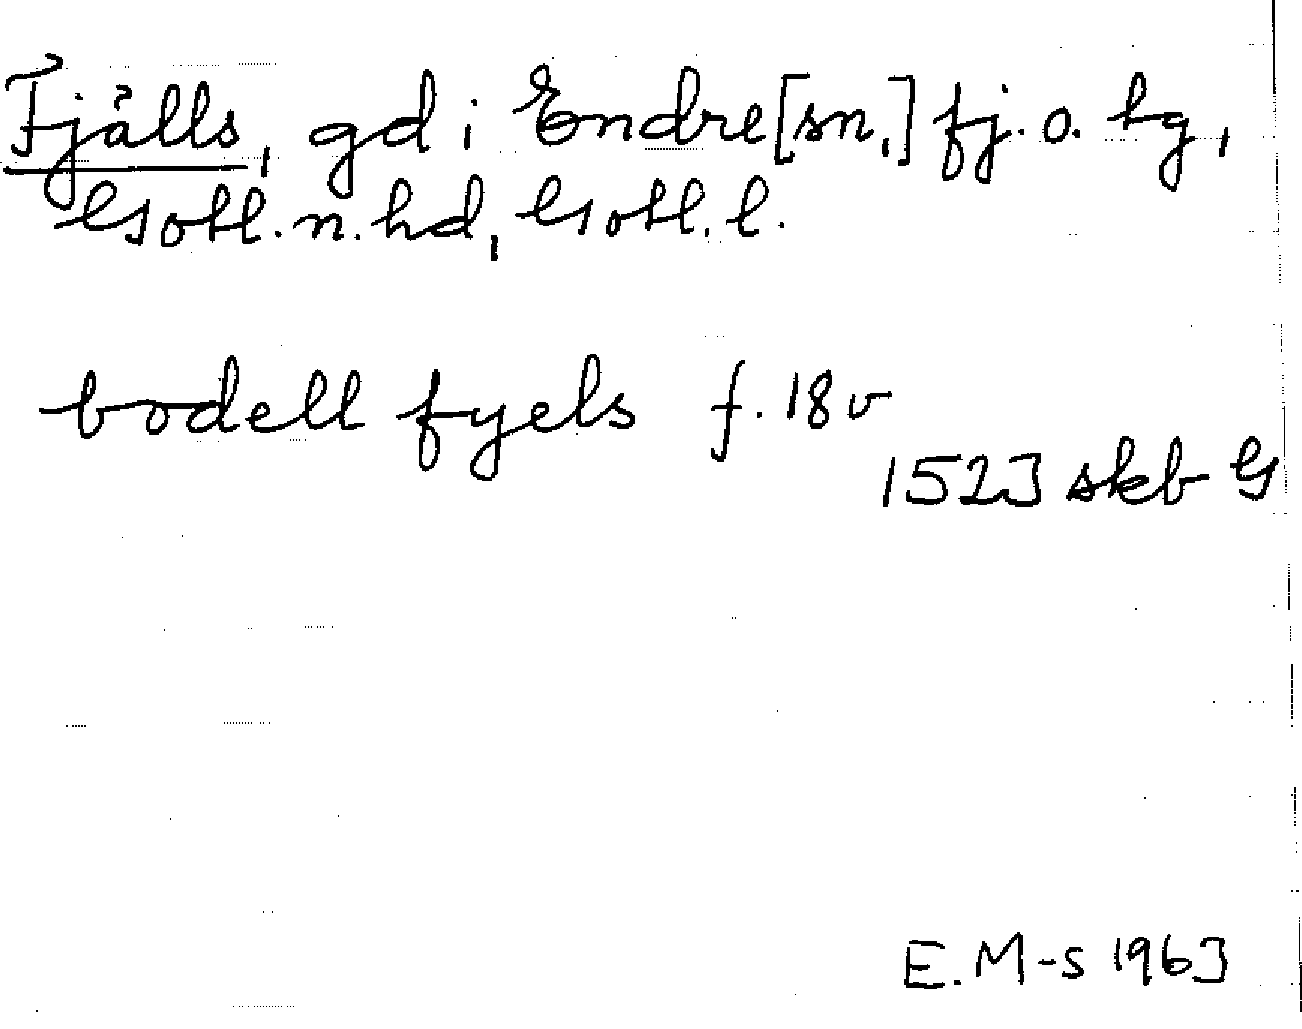 Fjälls, gd i Endre [sn,] fj. o. hg,
Gotl. n. hd, Gotl. l.
bodell fyels f. 18 v
1523 skb G
E. M-s 1963